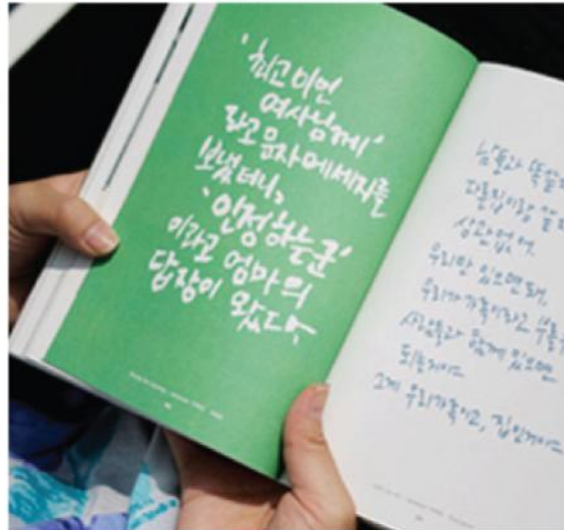 '최고미녀
여사님께'
라고 문자메세지를
보냈더니,
'인정하는군'
이라고 엄마의
답장이 왔다.
남들과 똑같
다른집이랑
상관없어.
우리만 있으면 돼.
우리가 가족이라고 부를수
사람들과 함께 있으면
되는거야
그게 우리가족이고, 집인거야